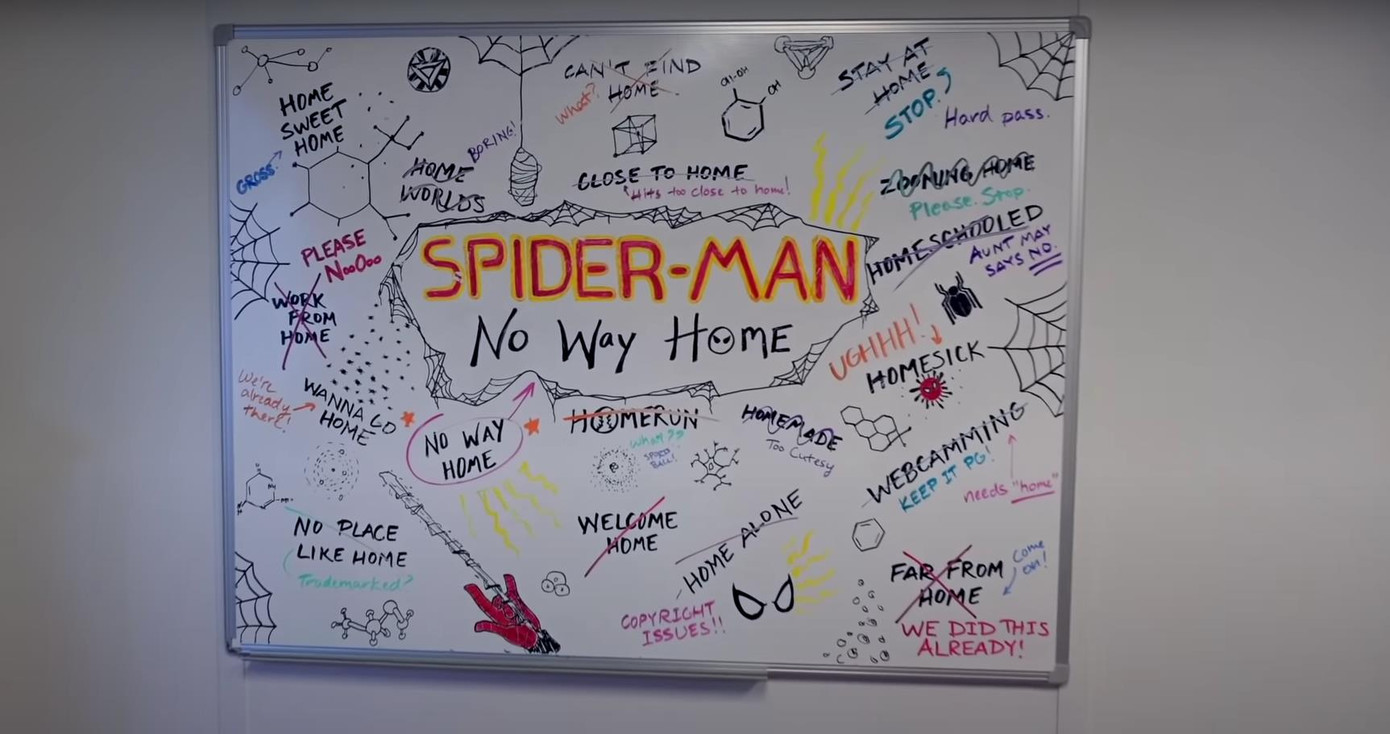 CAN'T FIND
HOME
What?
STAY AT
HOME
STOP.
Hard pass.
HOME
SWEET
HOME
GROSS.
HOME
WORLDS
BORING!
OH
CLOSE TO HOME
Hits too close to home!
ZOOMING HOME
Please. Stop.
HOMESCHOOLED
AUNT MAY
SAYS NO.
PLEASE
NooOoo
WORK
FROM
HOME
SPIDER-MAN
No Way Home
UGHHH!
HOMESICK
We're
already
there!
WANNA GO
HOME
NO WAY
HOME
HOOMERUN
What??
BALL!
HOMEMADE
Too Cutesy
WEBCAMMING
KEEP IT PG!
needs "home"
NO PLACE
LIKE HOME
Trademarked?
WELCOME
HOME
HOME ALONE
COPYRIGHT
ISSUES!!
FAR FROM
HOME
Come
on!
WE DID THIS
ALREADY!